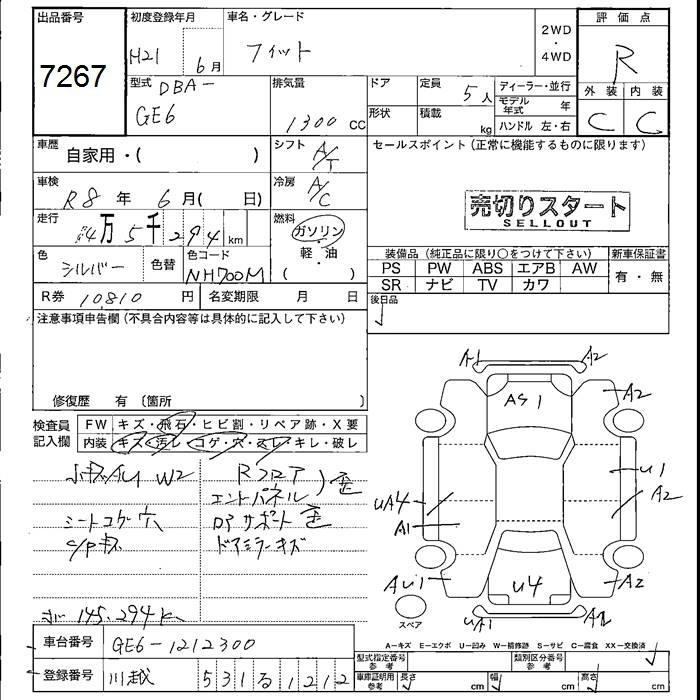 出品番号
7267
初度登録年月
H21 6月
車名・グレード
フィット
2WD
・
4WD
評価点
R
外装 内装
C C
型式 DBA-
GE6
排気量
1300 CC
ドア
定員 5人
形状
積載 kg
ディーラー・並行
モデル年式 年
ハンドル 左・右
車歴
自家用・( )
シフト A/T
セールスポイント(正常に機能するものに限ります)
売切りスタート
SELLOUT
車検
R8年 6月( 日)
冷房 A/C
走行
4万5千294km
燃料
ガソリン・
軽・油
( )
色 シルバー
色替
色コード
NH700M
装備品(純正品に限り○をつけて下さい)
新車保証書
PS PW ABS エアB AW
SR ナビ TV カワ
有・無
R券 10810 円
名変期限 月 日
後日品
注意事項申告欄(不具合内容等は具体的に記入して下さい)
修復歴 有 (箇所 )
検査員
記入欄
FW キズ・飛石・ヒビ割・リペア跡・X要
内装 キズ・汚レ・コゲ・穴・スレ・キレ・破レ
W2
Rフロア
エントパネル
歪
シートコゲ穴
サポート 歪
C/Pキズ
ドアミラーキズ
145.294K
A1 A2
AS1
A2
U1
A2
UA4
A1
AU1
U4
A2
UA1
スペア
A-キズ E-エクボ U-凹み W-補修跡 S-サビ C-腐食 XX-交換済
車台番号 GE6-1212300
登録番号 川越 531 る 1212
型式指定番号
参考
類別区分番号
参考
車庫証明用
参考
長さ cm
幅 cm
高さ cm